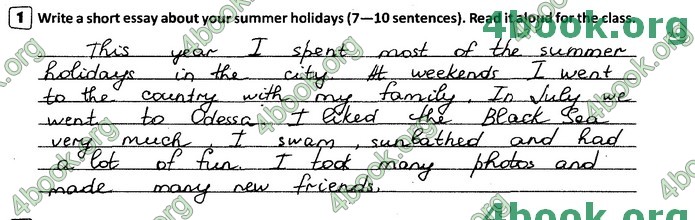 1 Write a short essay about your summer holidays (7—10 sentences). Read it aloud for the class.
4book.org
This year I spent most of the summer
holidays in the city. At weekends I went
to the country with my family. In July we
went to Odessa. I liked the Black Sea
very much. I swam, sunbathed and had
a lot of fun. I took many photos and
made many new friends.